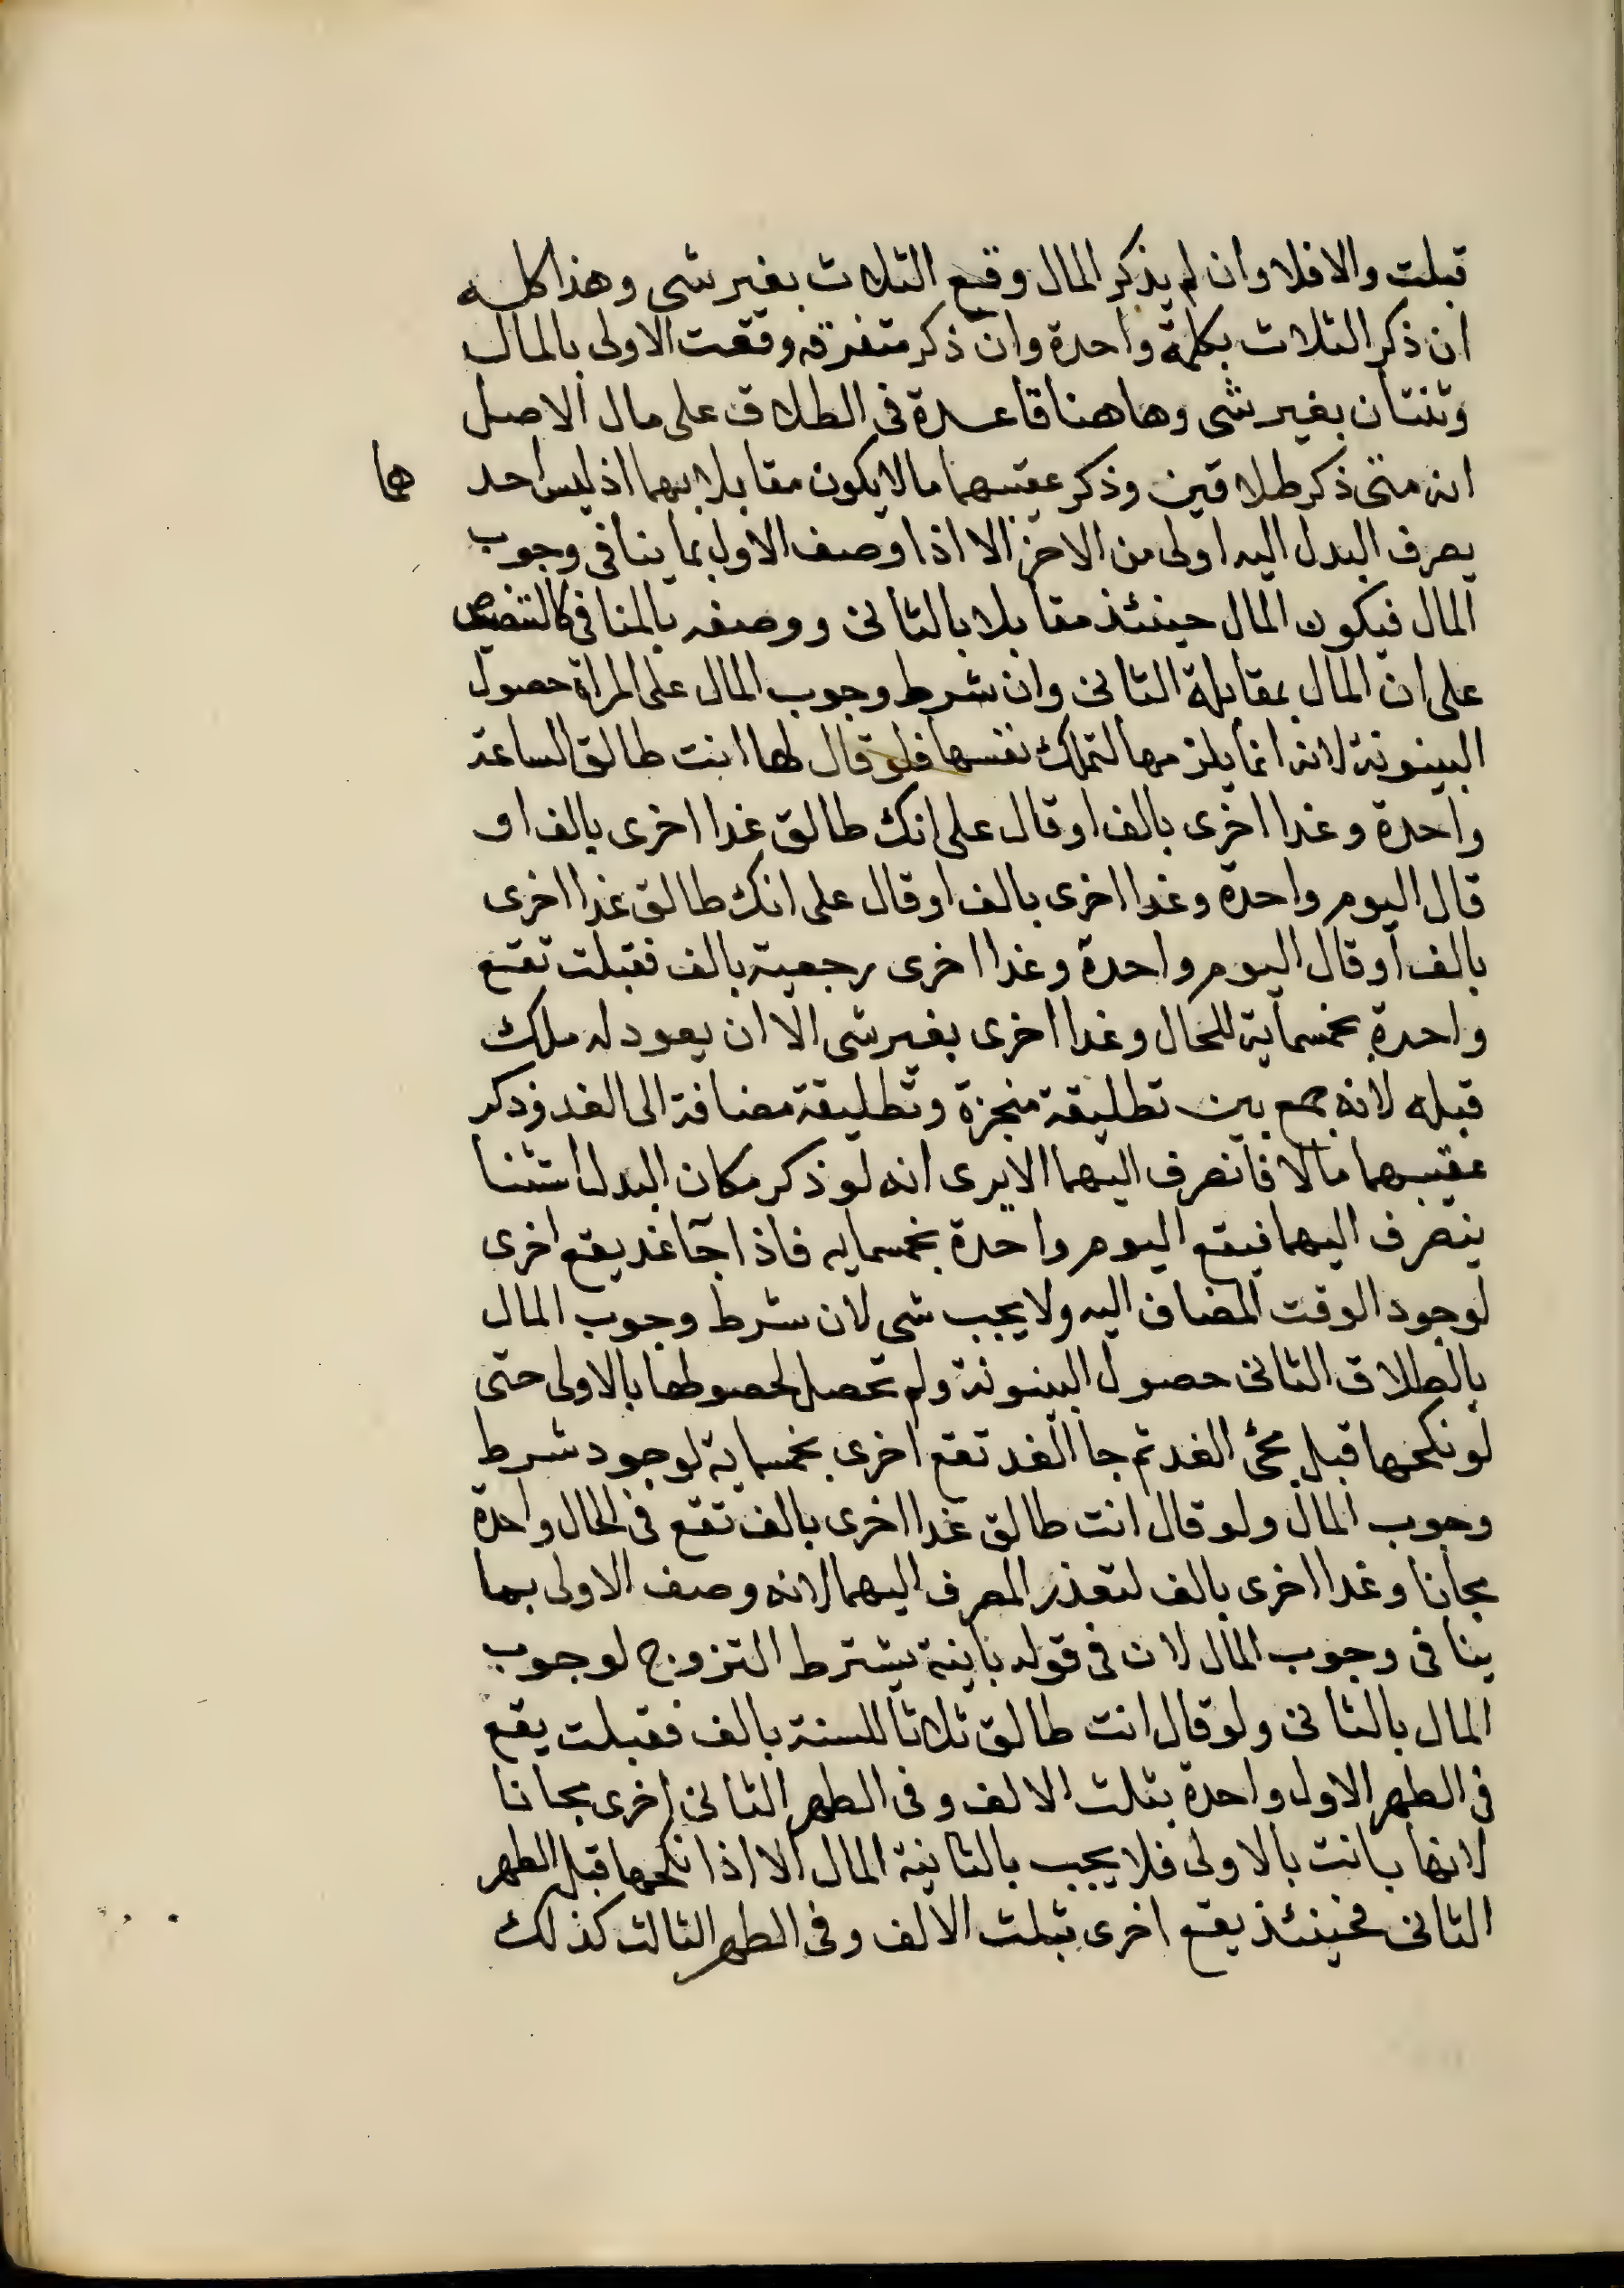 قبلت والا فلا وان لم يذكر المال وقع الثلاث بغير شى وهذا كله
ان ذكر الثلاث بكلمة واحدة وان ذكر متفرقه وقعت الاولى بالمال
وثنتان بغير شى وهاهنا قاعدة فى الطلاق على مال الاصل
انه متى ذكر طلاقين وذكر عقيبهما مالا يكون مقابلا بهما اذ ليس احدهما
بصرف البدل اليه اولى من الاخر الا اذا وصف الاول بما ينافى وجوب
المال فيكون المال حينئذ مقابلا بالثانى ووصفه بالمنافى كالتنصيص
على ان المال بمقابلة الثانى وان شرط وجوب المال على المراة حصول
البينونة لانه انما يلزمها لتملك نفسها فلو قال لها انت طالق الساعة
واحدة وغدا اخرى بالف او قال على انك طالق غدا اخرى بالف او
قال اليوم واحدة وغدا اخرى بالف او قال على انك طالق غدا اخرى
بالف او قال اليوم واحدة وغدا اخرى رجعية بالف فقبلت تقع
واحدة بخمسماية للحال وغدا اخرى بغير شى الا ان يعود له ملك
قبله لانه جمع بين تطليقة منجزة وتطليقة مضافة الى الغد وذكر
عقيبهما مالا فانصرف اليهما الا يرى انه لو ذكر مكان البدل استثنا
ينصرف اليهما فيقع اليوم واحدة بخمسمايه فاذا جآ غد يقع اخرى
لوجود الوقت المضاف اليه ولا يجب شى لان شرط وجوب المال
بالطلاق الثانى حصول البينونة ولم تحصل لحصولها بالاولى حتى
لو نكحها قبل مجئ الغد ثم جا الغد تقع اخرى بخمسماية لوجود شرط
وجوب المال ولو قال انت طالق غدا اخرى بالف تقع فى الحال واحدة
مجانا وغدا اخرى بالف لتعذر الصرف اليهما لانه وصف الاولى بما
ينافى وجوب المال لان فى قوله باينة يشترط التزوج لوجوب
المال بالثانى ولو قال انت طالق ثلاثا للسنة بالف فقبلت يقع
فى الطهر الاول واحدة بثلث الالف وفى الطهر الثانى اخرى مجانا
لانها بانت بالاولى فلا يجب بالثانية المال الا اذا نكحها قبل الطهر
الثانى فحينئذ يقع اخرى بثلث الالف وفى الطهر الثالث كذلك